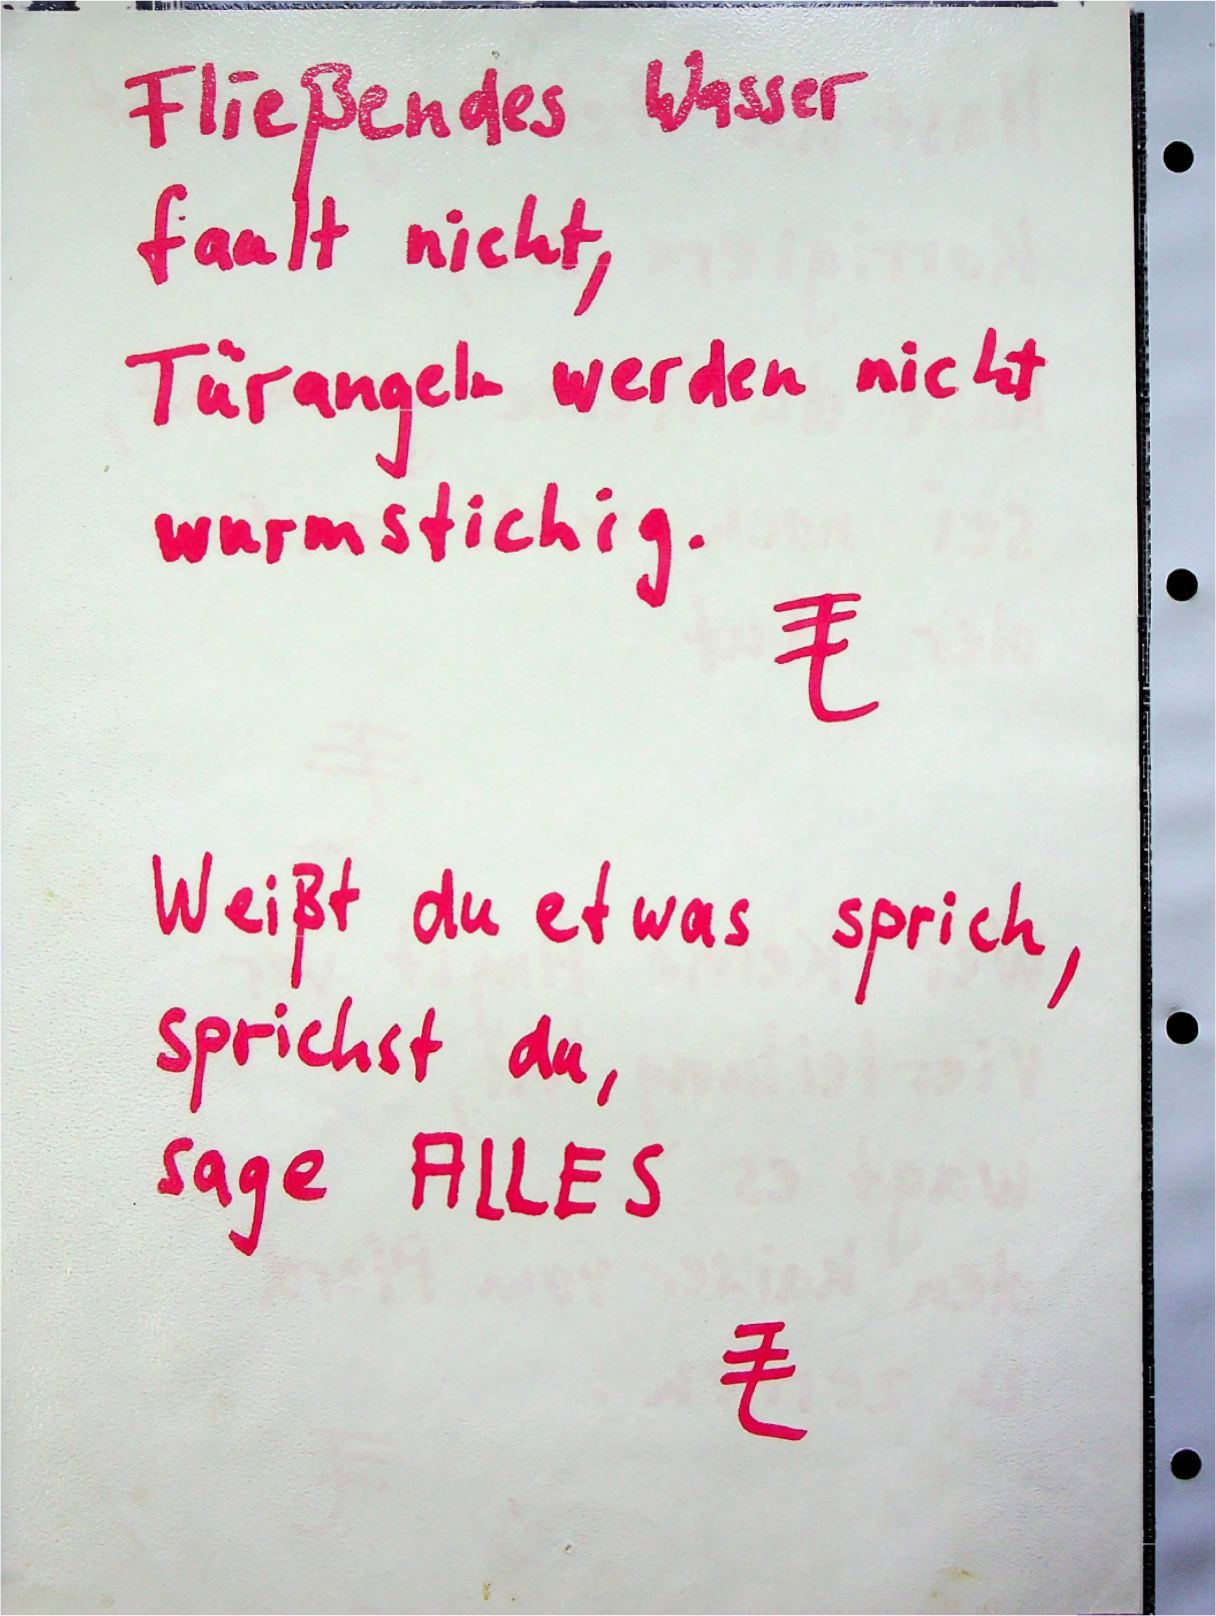 Fließendes Wasser
fault nicht,
Türangeln werden nicht
wurmstichig.
Weißt du etwas sprich,
sprichst du,
sage ALLES